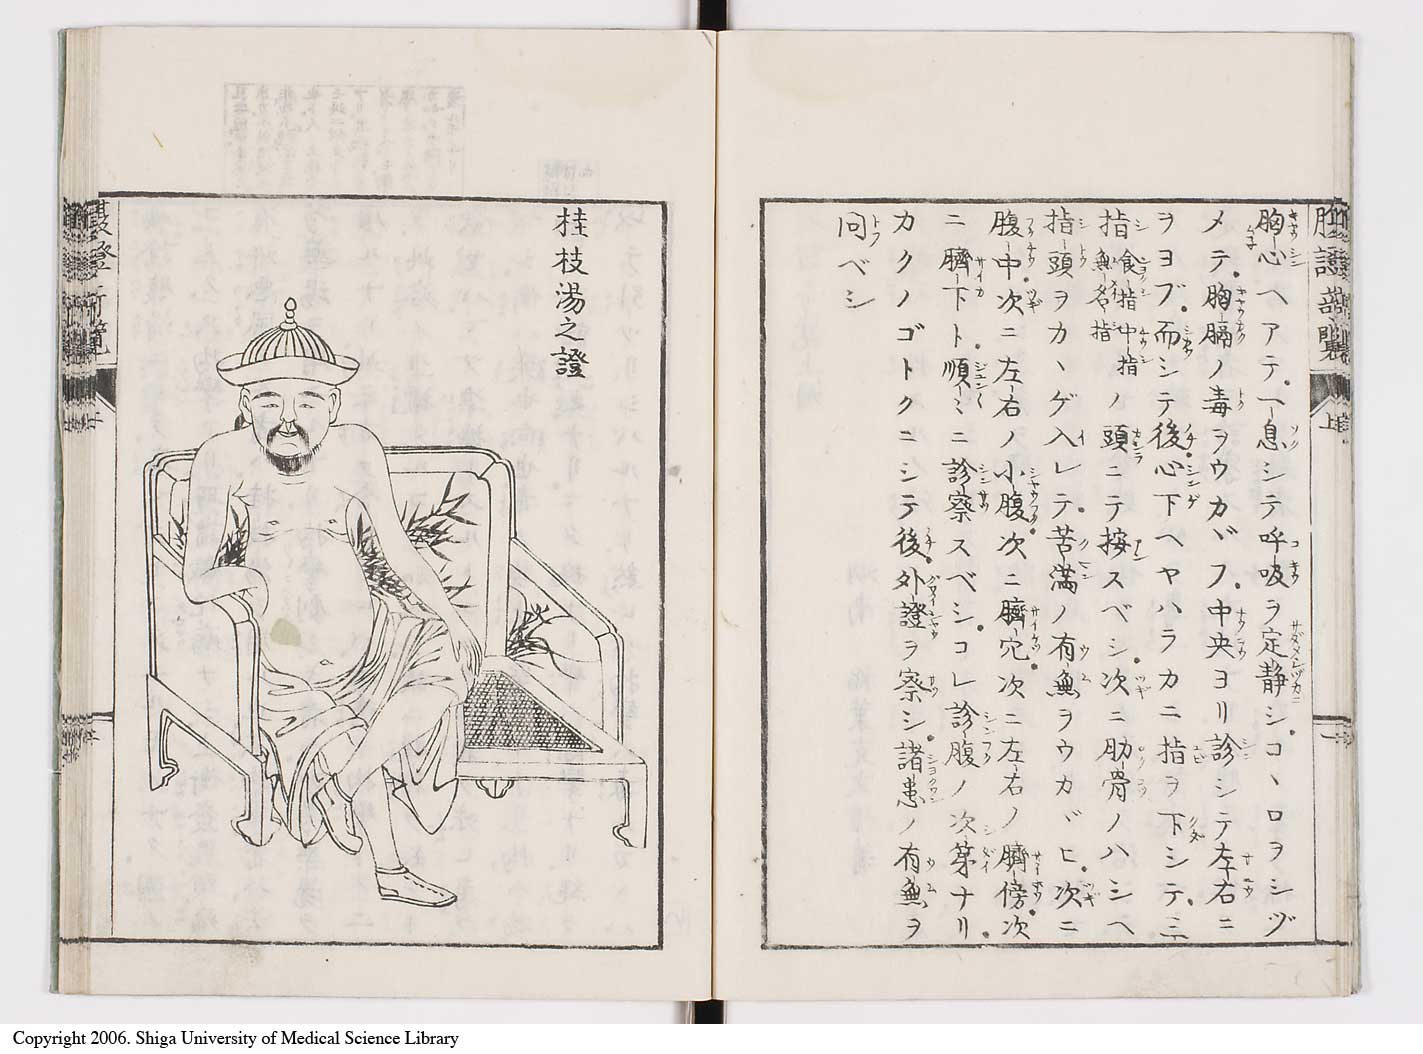 胸心ヘアテ一息シテ呼吸ヲ定静シコヽロヲシヅ
メテ胸膈ノ毒ヲウカヾフ中央ヨリ診シテ左右ニ
ヲヨブ而シテ後心下ヘヤハラカニ指ヲ下シテ三
指食指中指無名指ノ頭ニテ按スベシ次ニ肋骨ノハシヘ
指頭ヲカヽゲ入レテ苦満ノ有無ヲウカヾヒ次ニ
腹中次ニ左右ノ小腹次ニ臍穴次ニ左右ノ臍傍次
ニ臍下ト順〻ニ診察スベシコレ診腹ノ次第ナリ
カクノゴトクニシテ後外證ヲ察シ諸患ノ有無ヲ
問ベシ
上
桂枝湯之證
Copyright 2006. Shiga University of Medical Science Library